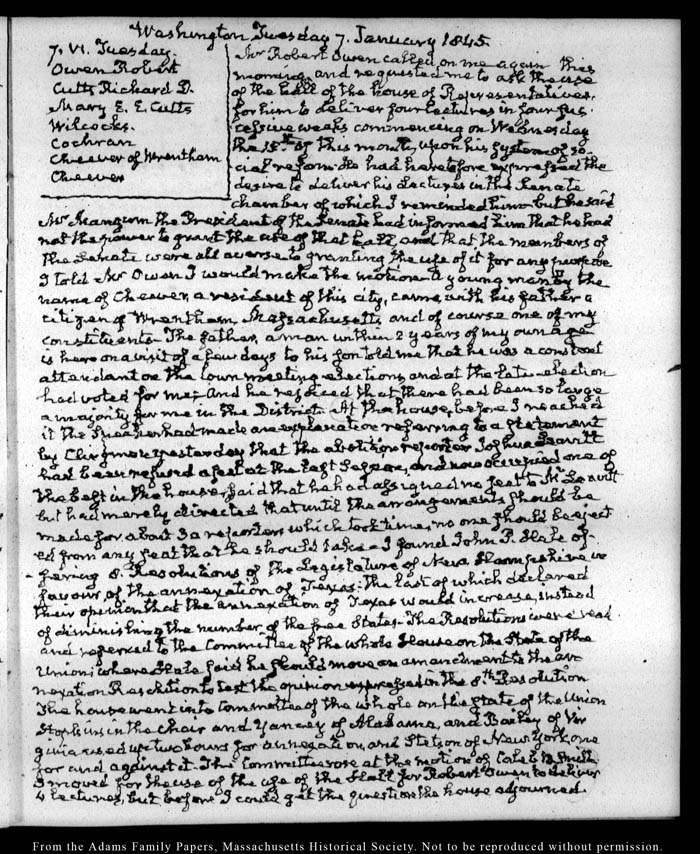 Washington Tuesday 7. January 1845.
7. VI. Tuesday.
Owen Robert
Cutts Richard D.
Mary E. E. Cutts
Wilcocks.
Cochran
Cheever of Wrentham
Cheever
Mr Robert Owen called on me again this
morning, and requested me to ask the use
of the hall of the House of Representatives,
for him to deliver four lectures in four suc-
cessive weeks commencing on Wednesday
the 15th of this month, upon his system of so-
cial reform. He had heretofore expressed the
desire to deliver his Lectures in the Senate
chamber of which I reminded him but he said
Mr Mangum the President of the Senate had informed him that he had
not the power to grant the use of that hall, and that the members of
the Senate were all averse to granting the use of it for any purpose
I told Mr Owen I would make the motion. A young man by the
name of Cheever, a resident of this city, came with his father a
citizen of Wrentham, Massachusetts and of course one of my
constituents. The father, a man within 2 years of my own age
is here on a visit of a few days to his son told me that he was a constant
attendant on the town meeting elections, and at the late election
had voted for me; and he rejoiced that there had been so large
a majority for me in the District. At the house, before I reached
it the Speaker had made an explanation referring to a statement
by Clingman yesterday that the abolition reporter Joshua Leavitt
had been refused a seat at the last Session, and now occupied one of
the best in the house, said that he had assigned no seat to Mr Leavitt
but had merely directed that until the arrangements should be
made for about 30 reporters which took time, no one should be eject
ed from any seat that he should take. I found John P. Hale of-
fering 8. Resolutions of the Legislature of New Hampshire in
favour of the annexation of Texas: the last of which declared
their opinion that the annexation of Texas would increase, instead
of diminishing the number of the free States. The Resolutions were read
and referred to the Committee of the whole House on the State of the
Union; where Hale said he should move an amendment to the an
nexation Resolution to test the opinion expressed in the 8th Resolution
The house went into committee of the whole on the state of the Union
Hopkins in the Chair and Yancey of Alabama, and Bayly of Vir
ginia used up two hours for annexation, and Stetson of New York, one
for and against it. The Committee rose at the motion of Caleb B. Smith
I moved for the use of the use of the Hall for Robert Owen to deliver
4 lectures, but before I could get the question the house adjourned.
From the Adams Family Papers, Massachusetts Historical Society. Not to be reproduced without permission.